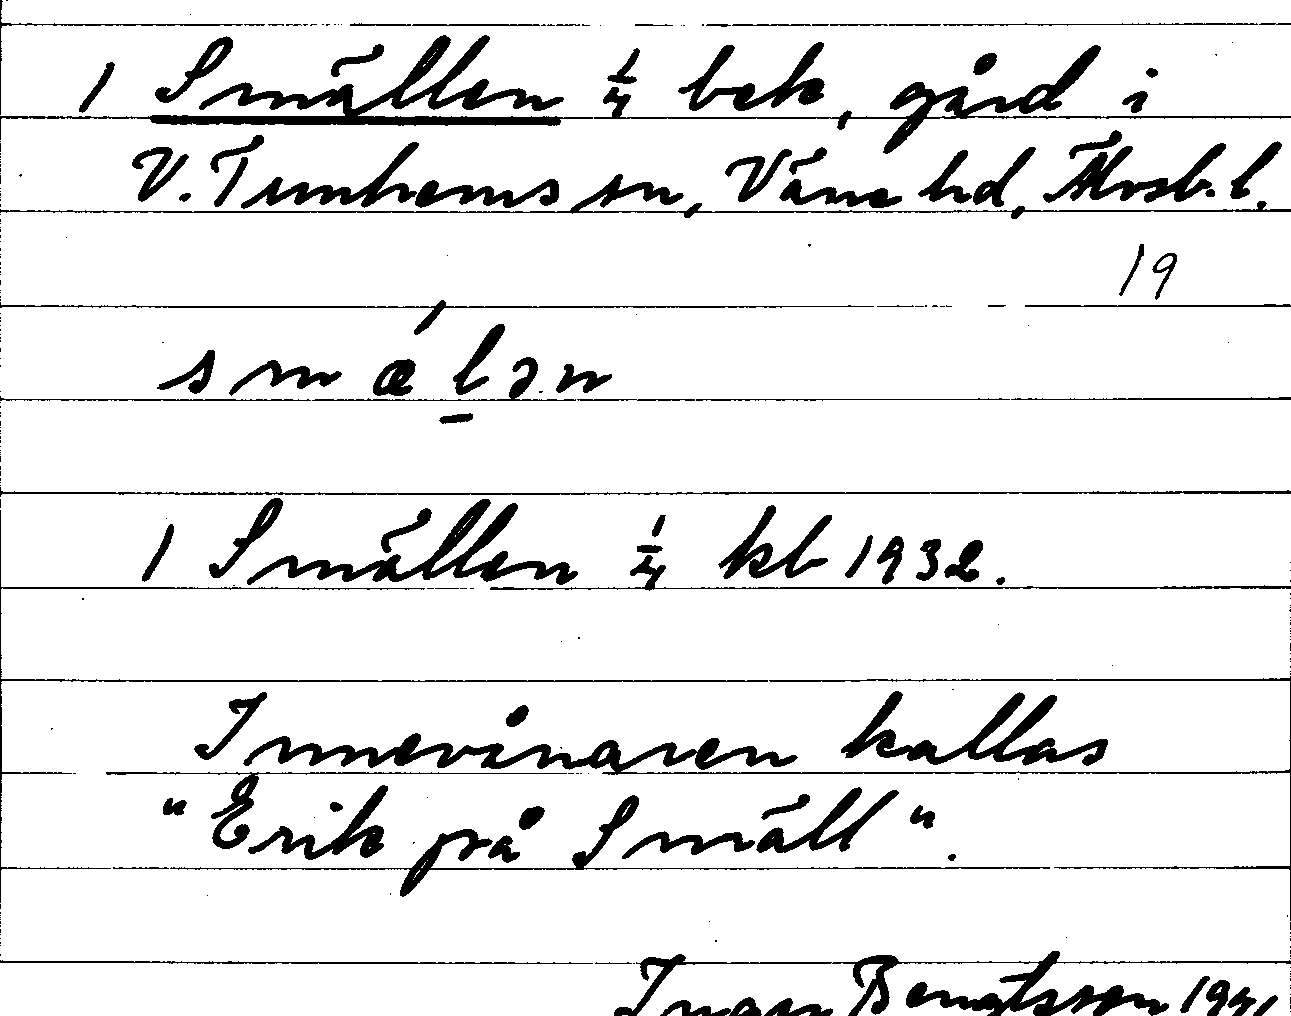 1 Smällen 1/4 bek, gård i
V. Tunhems sn, Väne hd, Älvsb. l.
19
smǽlən
1 Smällen 1/4 kb 1932.
Innevånaren kallas
"Erik på Smäll".
Bengtsson